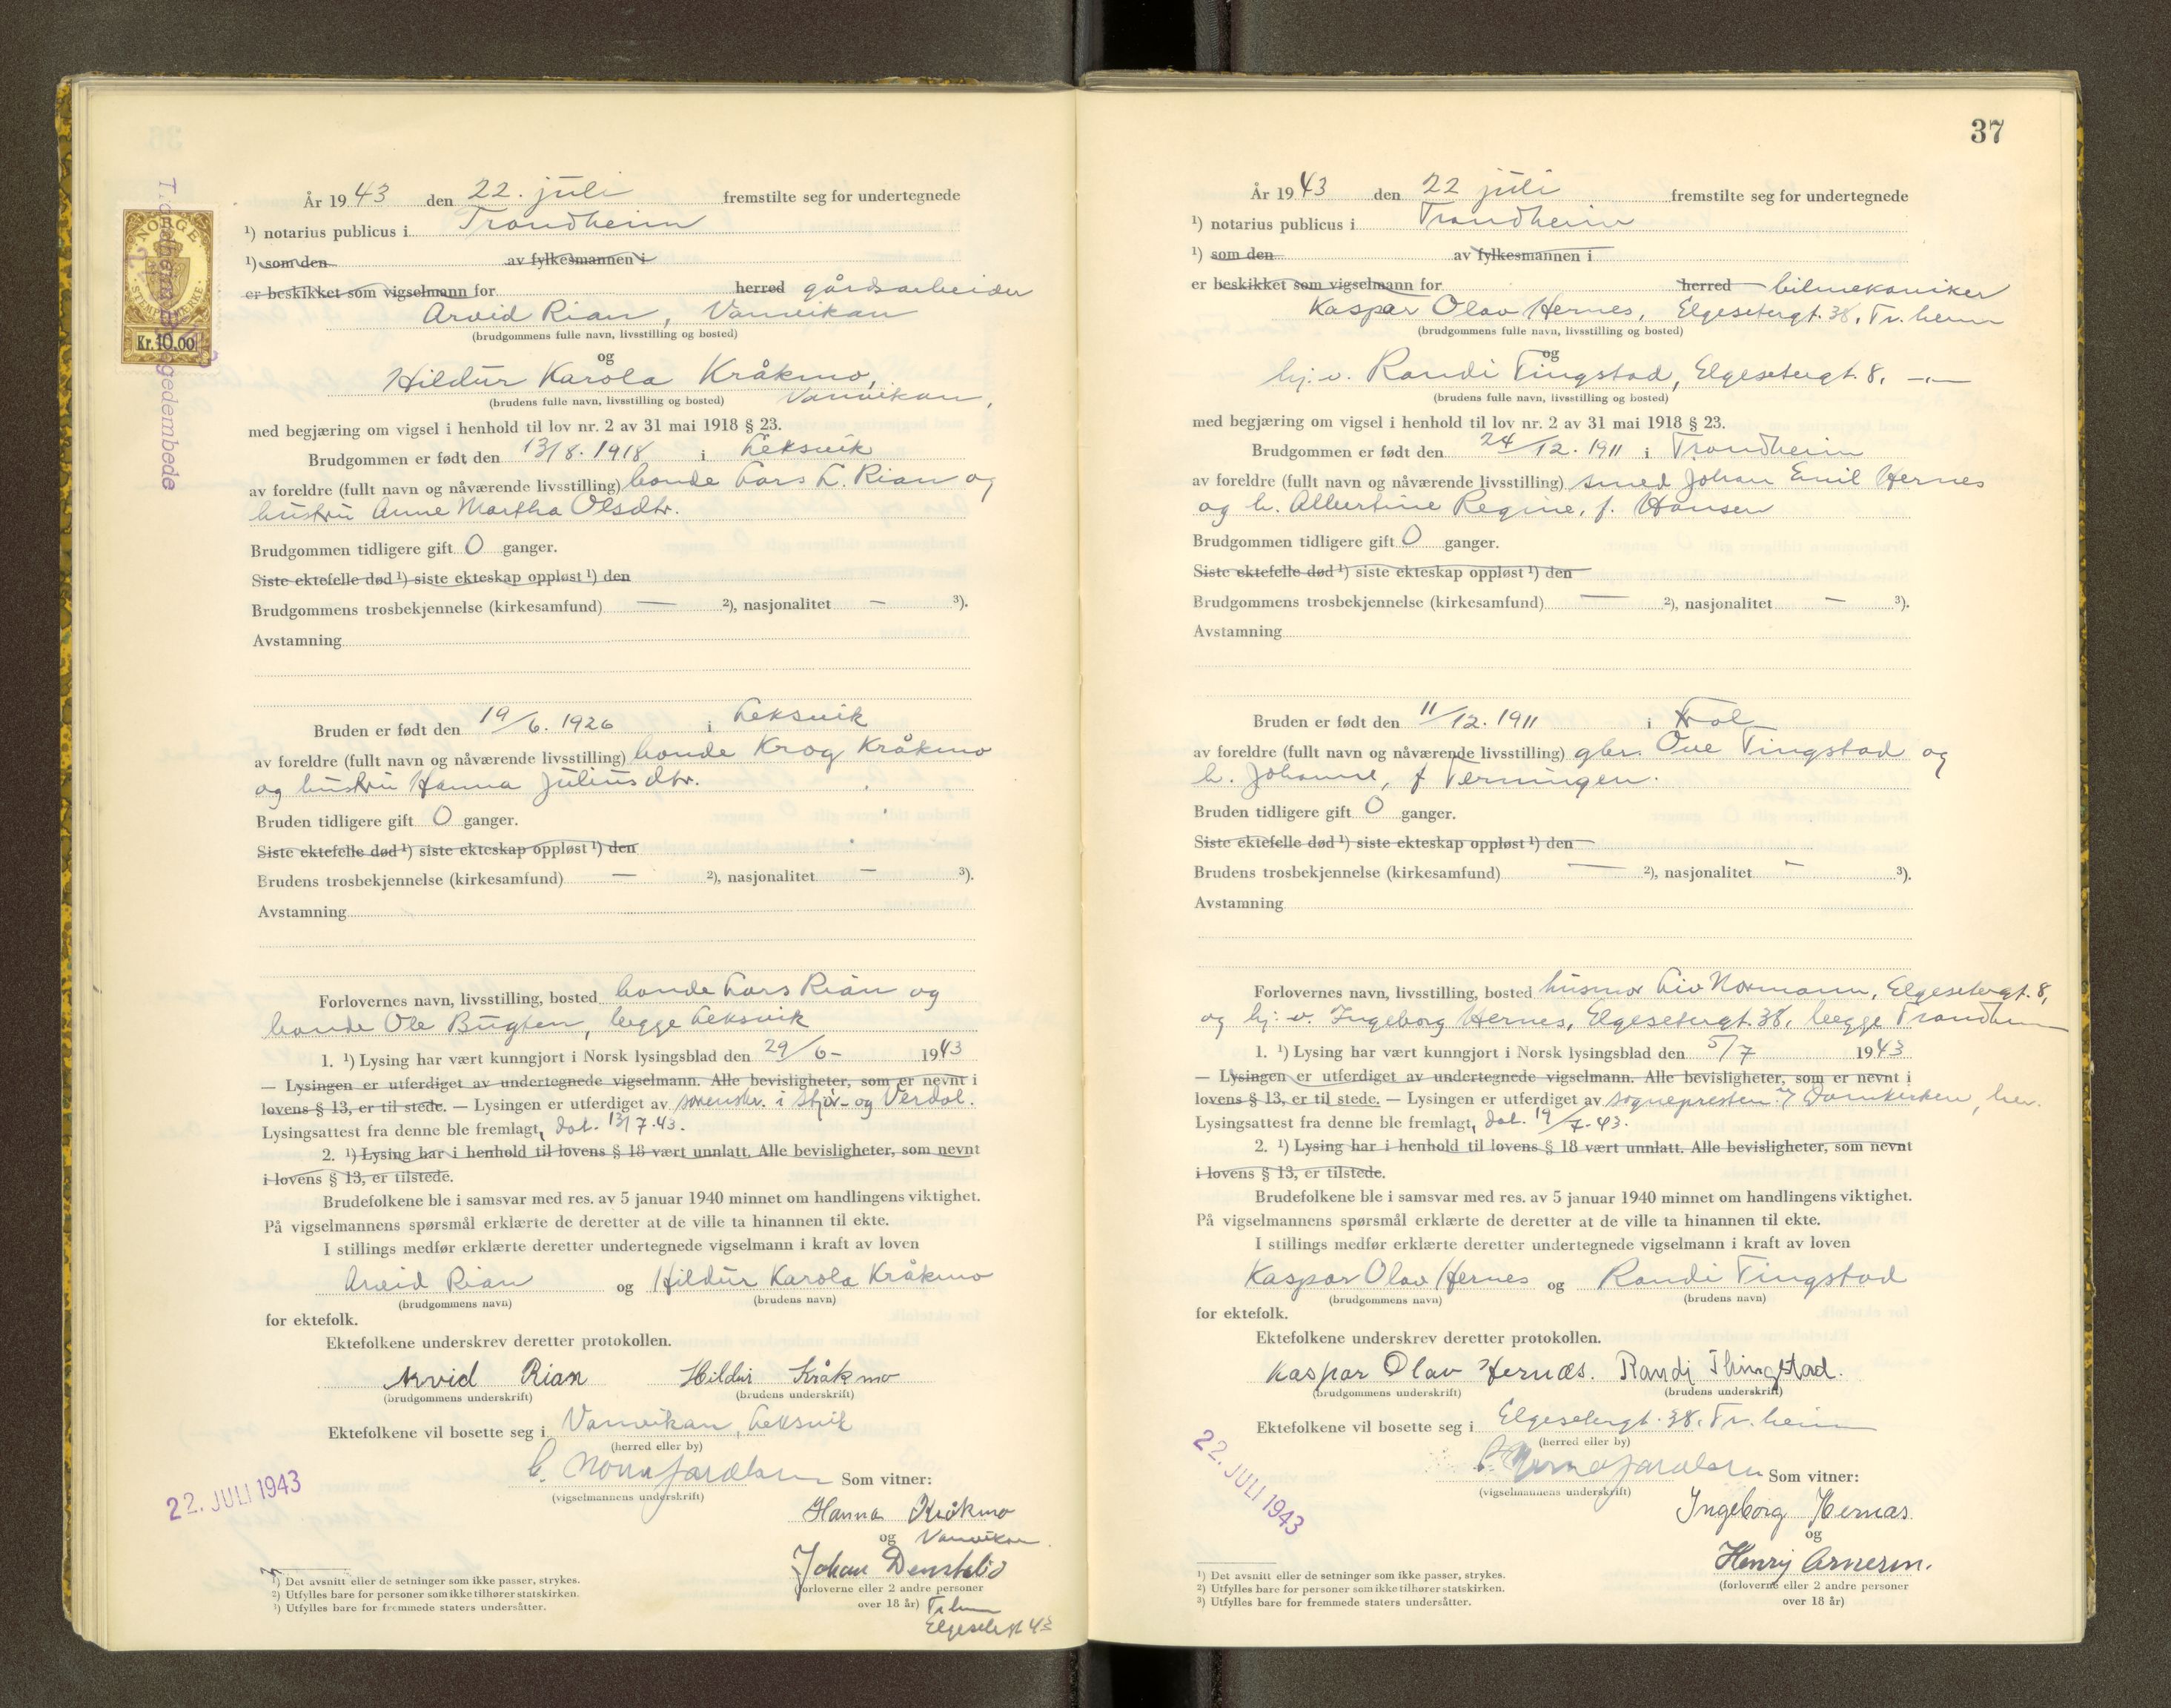 År 1943 den 22. juli fremstilte seg for undertegnede
¹) notarius publicus i Trondheim
¹) som den av fylkesmannen i
er beskikket som vigselmann for herred gårdsarbeider
Arvid Rian, Vanvikan
(brudgommens fulle navn, livsstilling og bosted)
og
Hildur Karola Kråkmo,
(brudens fulle navn, livsstilling og bosted) Vanvikan,
med begjæring om vigsel i henhold til lov nr. 2 av 31 mai 1918 § 23.
Brudgommen er født den 13/8. 1918 i Leksvik
av foreldre (fullt navn og nåværende livsstilling) bonde Lars L. Rian og
hustru Anne Martha Olsdtr.
Brudgommen tidligere gift 0 ganger.
Siste ektefelle død ¹) siste ekteskap oppløst ¹) den
Brudgommens trosbekjennelse (kirkesamfund) — ²), nasjonalitet — ³).
Avstamning
Bruden er født den 19/6. 1926 i Leksvik
av foreldre (fullt navn og nåværende livsstilling) bonde Krog Kråkmo
og hustru Hanna Juliusdtr.
Bruden tidligere gift 0 ganger.
Siste ektefelle død ¹) siste ekteskap oppløst ¹) den
Brudens trosbekjennelse (kirkesamfund) — ²), nasjonalitet — ³).
Avstamning
Forlovernes navn, livsstilling, bosted bonde Lars Rian og
bonde Ole Bugten, begge Leksvik
1. ¹) Lysing har vært kunngjort i Norsk lysingsblad den 29/6- 1943
— Lysingen er utferdiget av undertegnede vigselmann. Alle bevisligheter, som er nevnt i
lovens § 13, er til stede. — Lysingen er utferdiget av sorenskr. i Stjør- og Verdal.
Lysingsattest fra denne ble fremlagt, dat. 13/7.43.
2. ¹) Lysing har i henhold til lovens § 18 vært unnlatt. Alle bevisligheter, som nevnt
i lovens § 13, er tilstede.
Brudefolkene ble i samsvar med res. av 5 januar 1940 minnet om handlingens viktighet.
På vigselmannens spørsmål erklærte de deretter at de ville ta hinannen til ekte.
I stillings medfør erklærte deretter undertegnede vigselmann i kraft av loven
Arvid Rian og Hildur Karola Kråkmo
(brudgommens navn) (brudens navn)
for ektefolk.
Ektefolkene underskrev deretter protokollen.
Arvid Rian Hildur Kråkmo
(brudgommens underskrift) (brudens underskrift)
Ektefolkene vil bosette seg i Vanvikan, Leksvik
(herred eller by)
Som vitner:
(vigselmannens underskrift)
22. JULI 1943
Hanna Kråkmo
og Vanvikan.
Johan Denstad
(forloverne eller 2 andre personer
over 18 år) Tr.heim
Elgesetergt 43
¹) Det avsnitt eller de setninger som ikke passer, strykes.
²) Utfylles bare for personer som ikke tilhører statskirken.
³) Utfylles bare for fremmede staters undersåtter.
NORGE
STEMPELMERKE
Kr. 10.00
37
År 1943 den 22 juli fremstilte seg for undertegnede
¹) notarius publicus i Trondheim
¹) som den av fylkesmannen i
er beskikket som vigselmann for herred bilmekaniker
Kaspar Olav Hernes, Elgesetergt. 38, Tr.heim
(brudgommens fulle navn, livsstilling og bosted)
og
hj.v. Randi Tingstad, Elgesetergt. 8, —"—
(brudens fulle navn, livsstilling og bosted)
med begjæring om vigsel i henhold til lov nr. 2 av 31 mai 1918 § 23.
Brudgommen er født den 24/12. 1911 i Trondheim
av foreldre (fullt navn og nåværende livsstilling) smed Johan Emil Hernes
og h. Albertine Regine, f. Hansen
Brudgommen tidligere gift 0 ganger.
Siste ektefelle død ¹) siste ekteskap oppløst ¹) den
Brudgommens trosbekjennelse (kirkesamfund) — ²), nasjonalitet — ³).
Avstamning
Bruden er født den 11/12. 1911 i Frol
av foreldre (fullt navn og nåværende livsstilling) gbr. Ove Tingstad og
h. Johanne, f Terningen.
Bruden tidligere gift 0 ganger.
Siste ektefelle død ¹) siste ekteskap oppløst ¹) den
Brudens trosbekjennelse (kirkesamfund) — ²), nasjonalitet — ³).
Avstamning
Forlovernes navn, livsstilling, bosted husmor Liv Normann, Elgesetergt. 8,
og hj.v. Ingeborg Hernes, Elgesetergt. 38, begge Trondheim
1. ¹) Lysing har vært kunngjort i Norsk lysingsblad den 5/7 1943
— Lysingen er utferdiget av undertegnede vigselmann. Alle bevisligheter, som er nevnt i
lovens § 13, er til stede. — Lysingen er utferdiget av sognepresten i Domkirken, her.
Lysingsattest fra denne ble fremlagt, dat. 19/7-43.
2. ¹) Lysing har i henhold til lovens § 18 vært unnlatt. Alle bevisligheter, som nevnt
i lovens § 13, er tilstede.
Brudefolkene ble i samsvar med res. av 5 januar 1940 minnet om handlingens viktighet.
På vigselmannens spørsmål erklærte de deretter at de ville ta hinannen til ekte.
I stillings medfør erklærte deretter undertegnede vigselmann i kraft av loven
Kaspar Olav Hernes og Randi Tingstad
(brudgommens navn) (brudens navn)
for ektefolk.
Ektefolkene underskrev deretter protokollen.
Kaspar Olav Hernæs. Randi Thingstad.
(brudgommens underskrift) (brudens underskrift)
Ektefolkene vil bosette seg i Elgesetergt. 38, Tr.heim
(herred eller by)
Som vitner:
(vigselmannens underskrift)
22. JULI 1943
Ingeborg Hernæs
og
Henry Arnesen.
(forloverne eller 2 andre personer
over 18 år)
¹) Det avsnitt eller de setninger som ikke passer, strykes.
²) Utfylles bare for personer som ikke tilhører statskirken.
³) Utfylles bare for fremmede staters undersåtter.